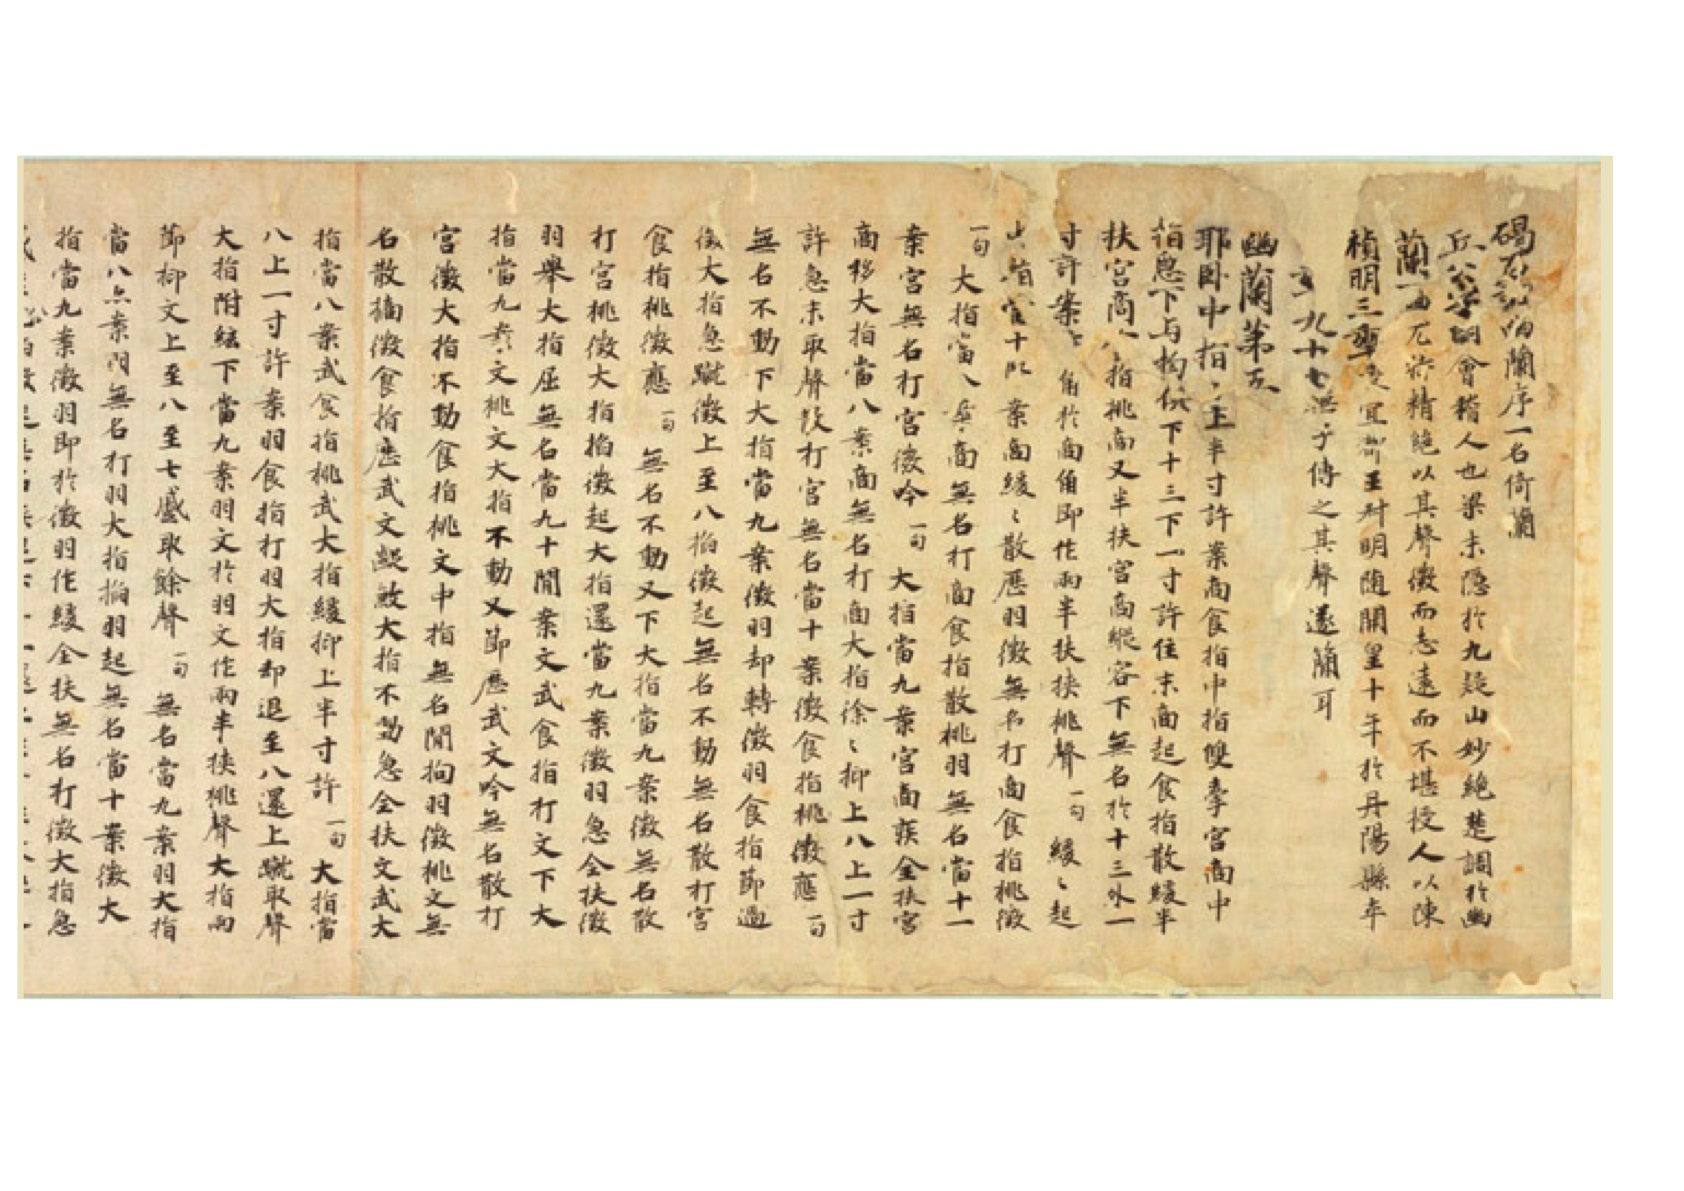 碣石調幽蘭序一名倚蘭
丘公字明會稽人也梁末隱於九疑山妙絕楚調於幽
蘭一曲尤特精絕以其聲微而志遠而不堪授人以陳
禎明三年授宜都王叔明隨開皇十年於丹陽縣卒
九十七無子傳之其聲遂簡耳
幽蘭第五
耶臥中指〻上半寸許案商食指中指雙牽宮商中
指急下与拘俱下十三下一寸許住末商起食指散緩半
扶宮商食指挑商又半扶宮商縱容下無名於十三外一
寸許案商角於商角即作兩半扶挾挑聲一句緩〻起
無名當十案商緩〻散歷羽徵無名打商食指挑徵
一句大指當八案商無名打商食指散挑羽無名當十一
案宮無名打宮徵吟一句大指當九案宮商疾全扶宮
商移大指當八案商無名打商大指徐〻抑上八上一寸
許急末取聲散打宮無名當十案徵食指挑徵應一句
無名不動下大指當九案徵羽却轉徵羽食指節過
徵大指急蹴徵上至八掐徵起無名不動無名散打宮
食指挑徵應一句無名不動又下大指當九案徵無名散
打宮挑徵大指掐徵起大指還當九案徵羽急全扶徵
羽舉大指屈無名當九十閒案文武食指打文下大
指當九案文挑文大指不動又節歷武文吟無名散打
宮徵大指不動食指挑文中指無名閒拘羽徵挑文無
名散擿徵食指歷武文㩻㪇大指不動急全扶文武大
指當八案武食指挑武大指緩抑上半寸許一句大指當
八上一寸許案羽食指打羽大指却退至八還上蹴取聲
大指附絃下當九案羽文於羽文作兩半挾挑聲大指兩
節抑文上至八至七盛取餘聲一句無名當九案羽大指
當八案閒無名打羽大指掐羽起無名當十案徵大
指當九案徵羽即於徵羽作緩全扶無名打徵大指急